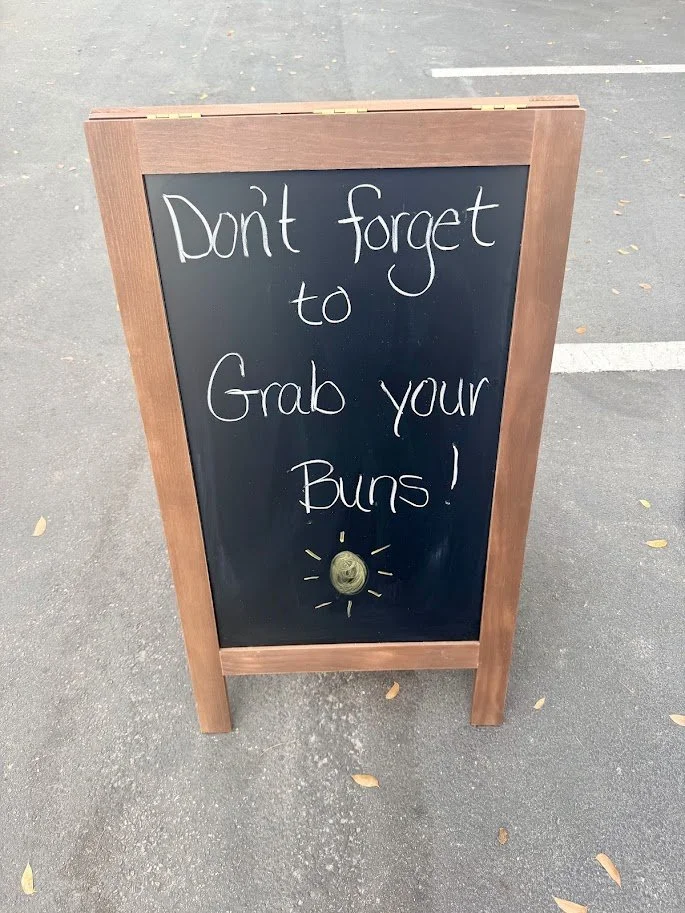 Don't forget
to
Grab your
Buns!